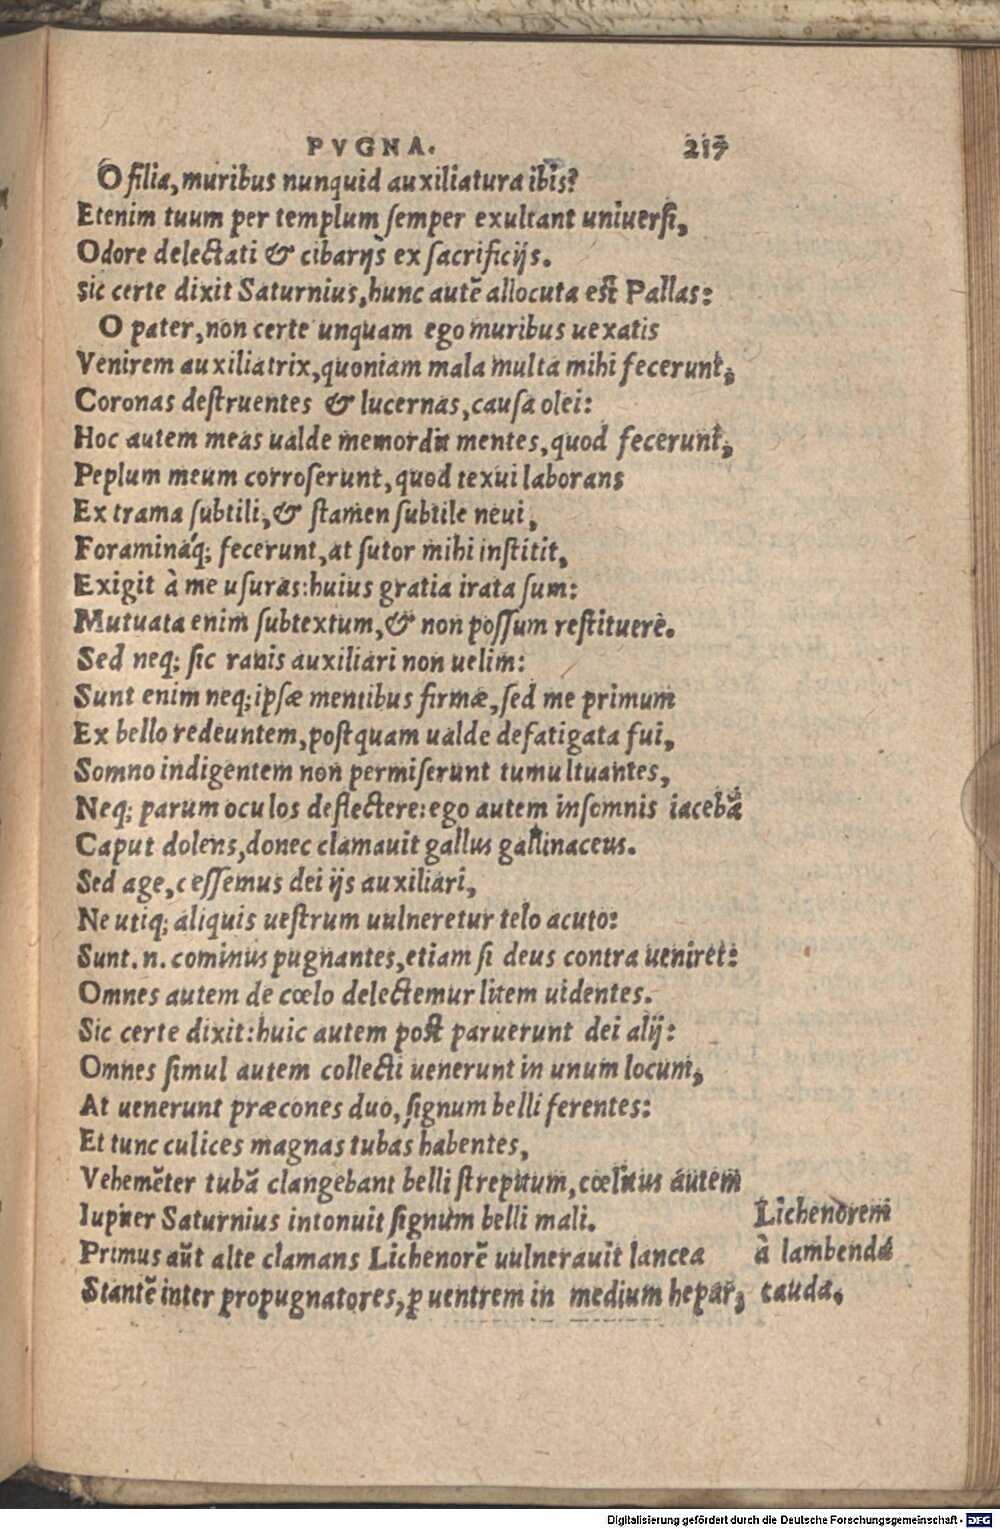 PVGNA. 217
O filia, muribus nunquid auxiliatura ibis?
Etenim tuum per templum ſemper exultant uniuerſi,
Odore delectati & cibarijs ex ſacrificijs.
Sic certe dixit Saturnius, hunc autē allocuta eſt Pallas:
O pater, non certe unquam ego muribus uexatis
Venirem auxiliatrix, quoniam mala multa mihi fecerunt,
Coronas deſtruentes & lucernas, cauſa olei:
Hoc autem meas ualde memordit mentes, quod fecerunt,
Peplum meum corroſerunt, quod texui laborans
Ex trama ſubtili, & ſtamen ſubtile neui,
Foramináq; fecerunt, at ſutor mihi inſtitit,
Exigit à me uſuras: huius gratia irata ſum:
Mutuata enim ſubtextum, & non poſſum reſtituere.
Sed neq; ſic ranis auxiliari non uelim:
Sunt enim neq; ipſæ mentibus firmæ, ſed me primum
Ex bello redeuntem, poſtquam ualde defatigata fui,
Somno indigentem non permiſerunt tumultuantes,
Neq; parum oculos deflectere: ego autem inſomnis iacebā
Caput dolens, donec clamauit gallus gallinaceus.
Sed age, ceſſemus dei ijs auxiliari,
Ne utiq; aliquis ueſtrum uulneretur telo acuto:
Sunt.n. cominus pugnantes, etiam ſi deus contra ueniret:
Omnes autem de cœlo delectemur litem uidentes.
Sic certe dixit: huic autem poſt paruerunt dei alij:
Omnes ſimul autem collecti uenerunt in unum locum,
At uenerunt præcones duo, ſignum belli ferentes:
Et tunc culices magnas tubas habentes,
Vehemēter tubā clangebant belli ſtrepitum, cœlitus autem
Iupiter Saturnius intonuit ſignum belli mali.
Primus aūt alte clamans Lichenorē uulnerauit lancea
Stantē inter propugnatores, ꝑ uentrem in medium hepar,
Lichenorem
à lambenda
cauda.
Digitalisierung gefördert durch die Deutsche Forschungsgemeinschaft - DFG